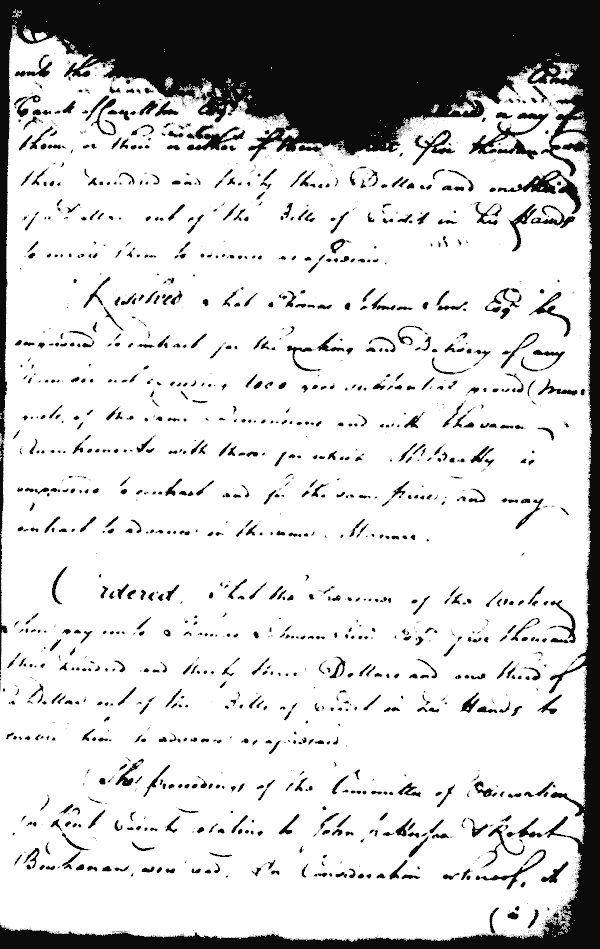 unto the
Carrollton Esq.r or any of
them, or their or either of them five thousand
three hundred and thirty three Dollars and one third
of a Dollar out of the Bills of Credit in his Hands
to enable them to advance as aforesaid.
Resolved that Thomas Johnson Jun.r Esq.r be
empowered to contract for the making and Delivery of any
Number not exceeding 1000 good substantial proved Musq
quets, of the same Dimensions and with the same
Accoutrements with those for which Mr. Beatty is
empowered to contract and for the same prices, and may
contract to advance in the same Manner.
Ordered, That the Treasurer of the Western
Shore pay unto Thomas Johnson Jun.r Esq.r five thousand
three hundred and thirty three Dollars and one third of
a Dollar out of the Bills of Credit in his Hands to
enable him to advance as aforesaid.
The proceedings of the Committee of Observation
for Kent County relating to John Patterson & Robert
Buchanan, were read. On Consideration whereof, it